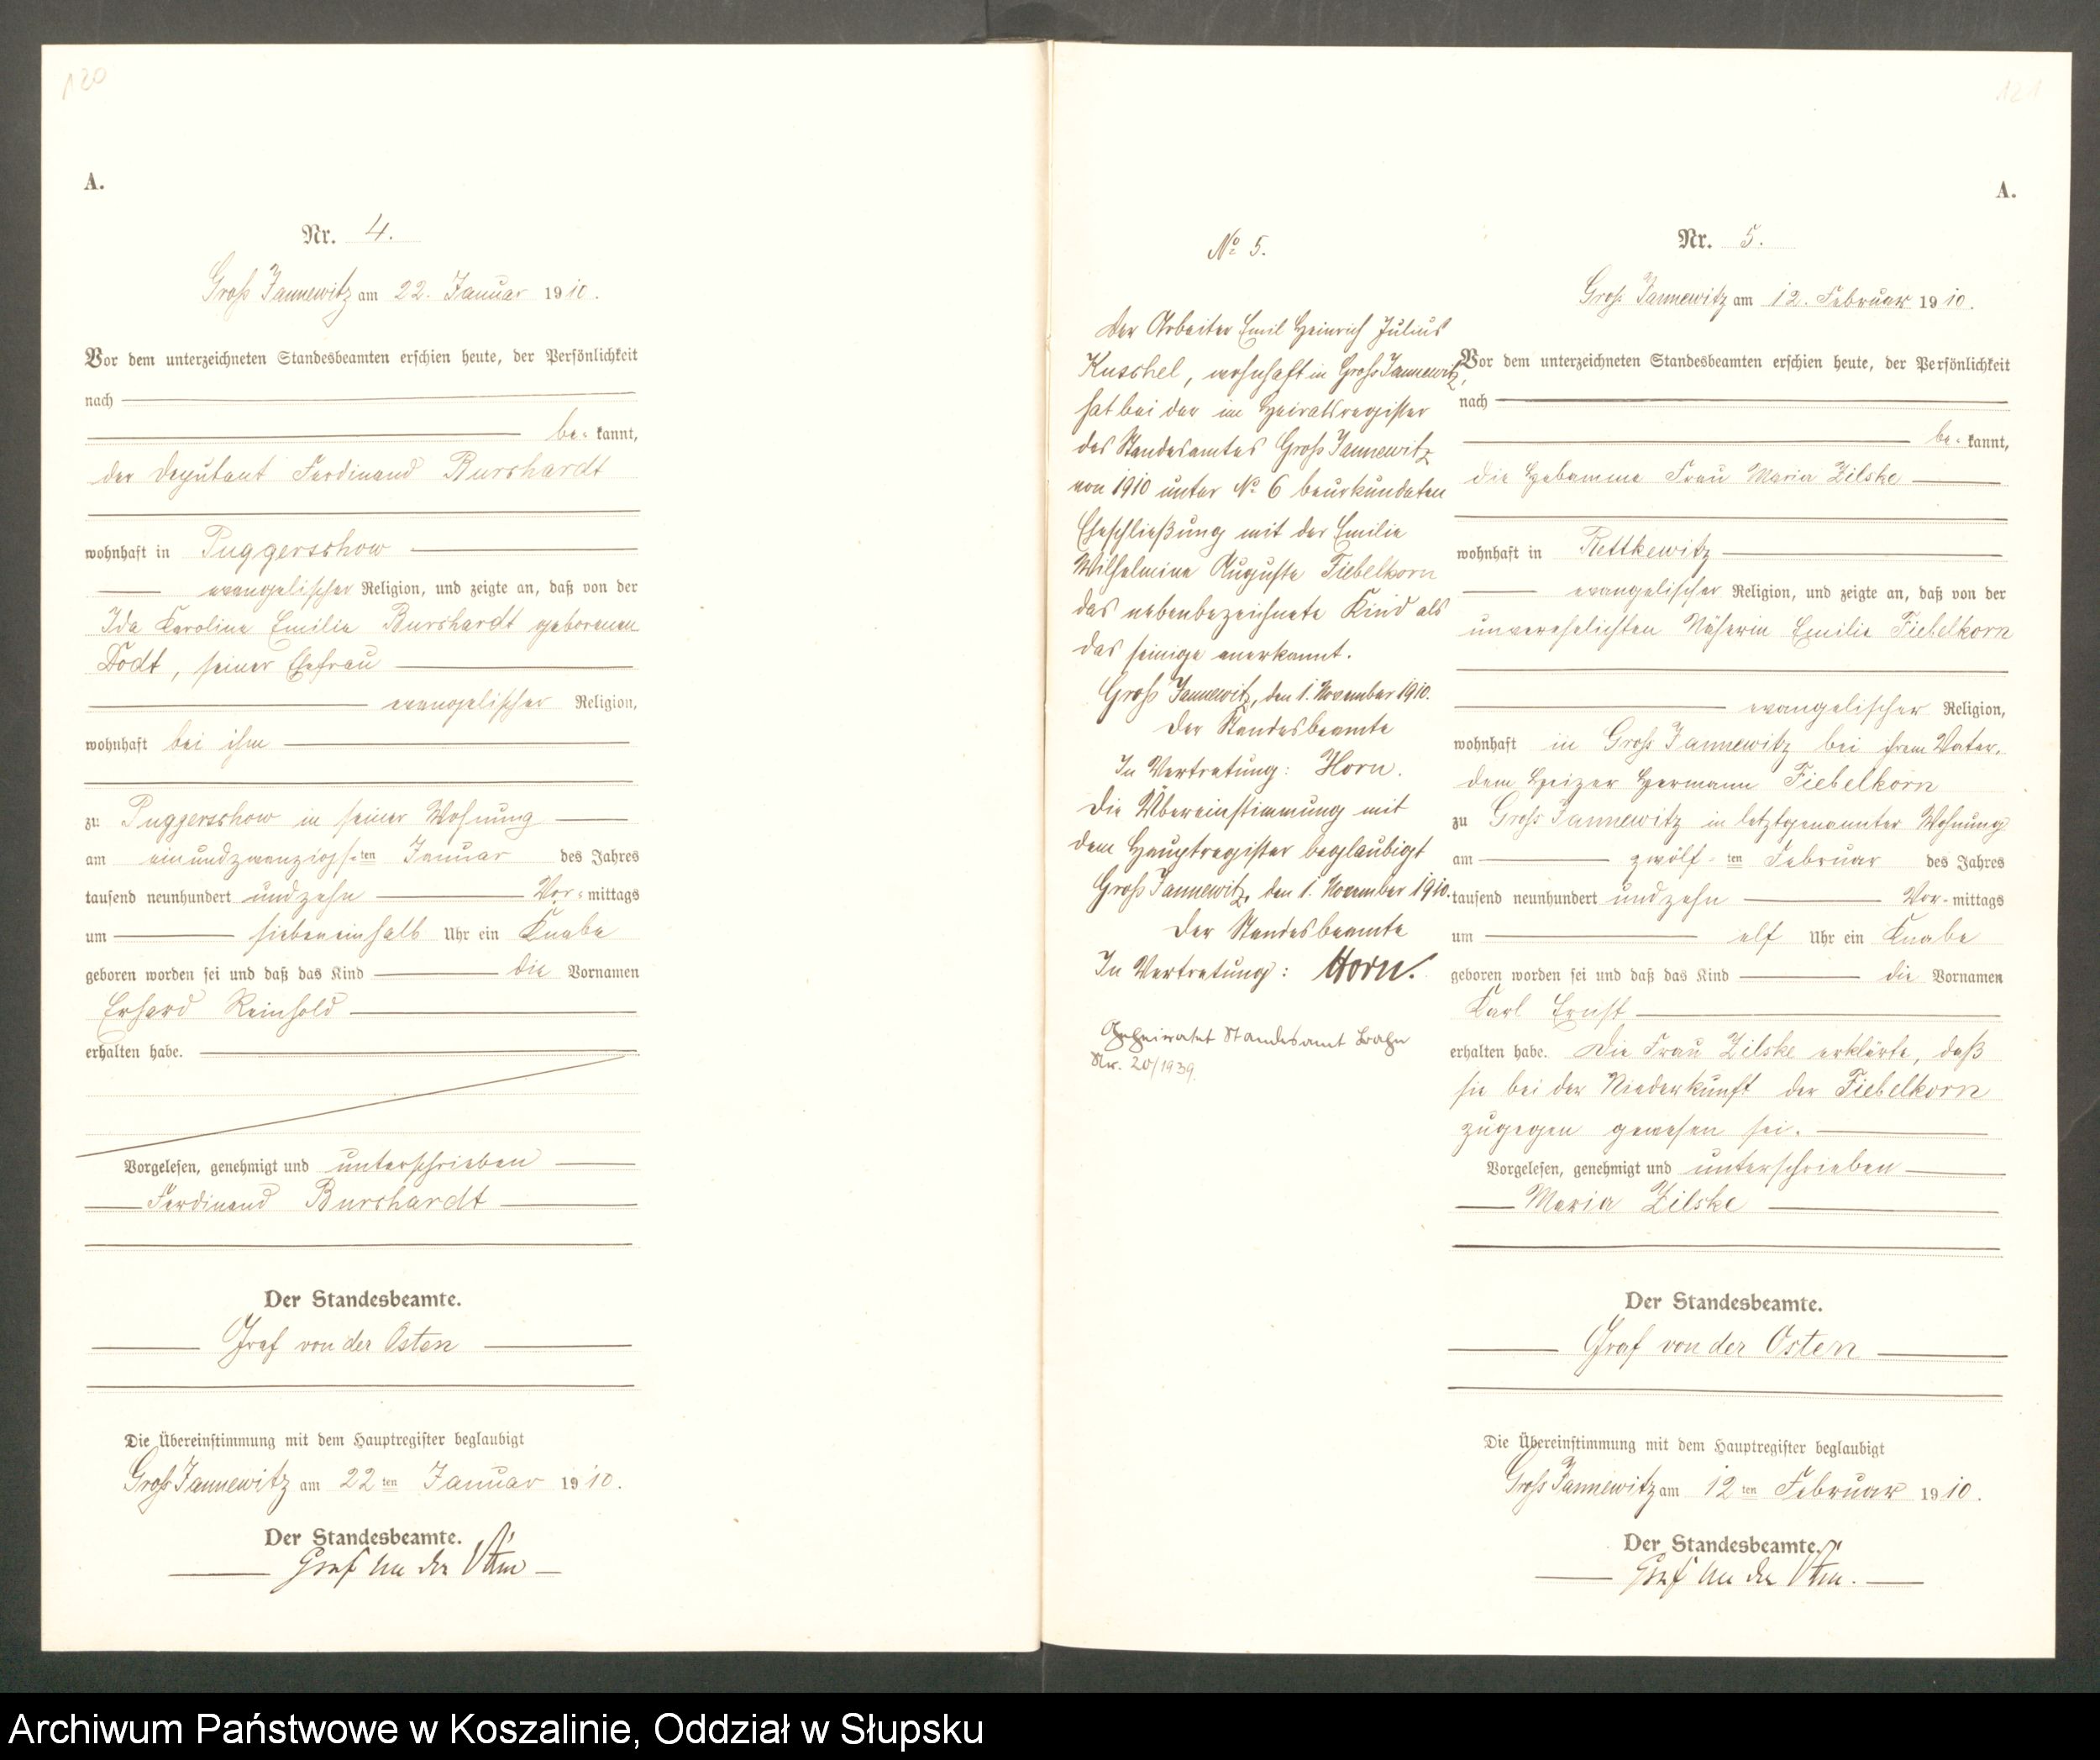 120
A.
Nr. 4.
Groß Jannewitz am 22. Januar 1910.
Vor dem unterzeichneten Standesbeamten erschien heute, der Persönlichkeit
nach
be- kannt,
der Deputant Ferdinand Burchardt
wohnhaft in Puggerschow
evangelischer Religion, und zeigte an, daß von der
Ida Karoline Emilie Burchardt geborenen
Dodt, seiner Ehefrau
evangelischer Religion,
wohnhaft bei ihm
zu Puggerschow in seiner Wohnung
am einundzwanzigs-ten Januar des Jahres
tausend neunhundert undzehn Vor-mittags
um siebeneinhalb Uhr ein Knabe
geboren worden sei und daß das Kind die Vornamen
Erhard Reinhold
erhalten habe.
Vorgelesen, genehmigt und unterschrieben
Ferdinand Burchardt
Der Standesbeamte.
Graf von der Osten
Die Übereinstimmung mit dem Hauptregister beglaubigt
Groß Jannewitz am 22ten Januar 1910.
Der Standesbeamte.
Graf von der Osten
121
A.
No 5.
Der Arbeiter Emil Heinrich Julius
Kuschel, wohnhaft in Groß Jannewitz,
hat bei der im Heiratsregister
des Standesamtes Groß Jannewitz
von 1910 unter No 6 beurkundeten
Eheschließung mit der Emilie
Wilhelmine Auguste Fiebelkorn
das nebenbezeichnete Kind als
das seinige anerkannt.
Groß Jannewitz, den 1. November 1910.
Der Standesbeamte
In Vertretung: Horn.
Die Übereinstimmung mit
dem Hauptregister beglaubigt
Groß Jannewitz, den 1. November 1910.
Der Standesbeamte
In Vertretung: Horn.
Geheiratet Standesamt
Nr. 20/1939.
Nr. 5.
Groß Jannewitz am 12. Februar 1910.
Vor dem unterzeichneten Standesbeamten erschien heute, der Persönlichkeit
nach
be- kannt,
die Hebamme Frau Maria Zilske
wohnhaft in Rettkewitz
evangelischer Religion, und zeigte an, daß von der
unverehelichten Näherin Emilie Fiebelkorn
evangelischer Religion,
wohnhaft in Groß Jannewitz bei ihrem Vater,
dem Heizer Hermann Fiebelkorn
zu Groß Jannewitz in letztgenannter Wohnung
am zwölf-ten Februar des Jahres
tausend neunhundert undzehn Vor-mittags
um elf Uhr ein Knabe
geboren worden sei und daß das Kind die Vornamen
Karl Ernst
erhalten habe. Die Frau Zilske erklärte, daß
sie bei der Niederkunft der Fiebelkorn
zugegen gewesen sei.
Vorgelesen, genehmigt und unterschrieben
Maria Zilske
Der Standesbeamte.
Graf von der Osten
Die Übereinstimmung mit dem Hauptregister beglaubigt
Groß Jannewitz am 12ten Februar 1910.
Der Standesbeamte.
Graf von der Osten.
Archiwum Państwowe w Koszalinie, Oddział w Słupsku